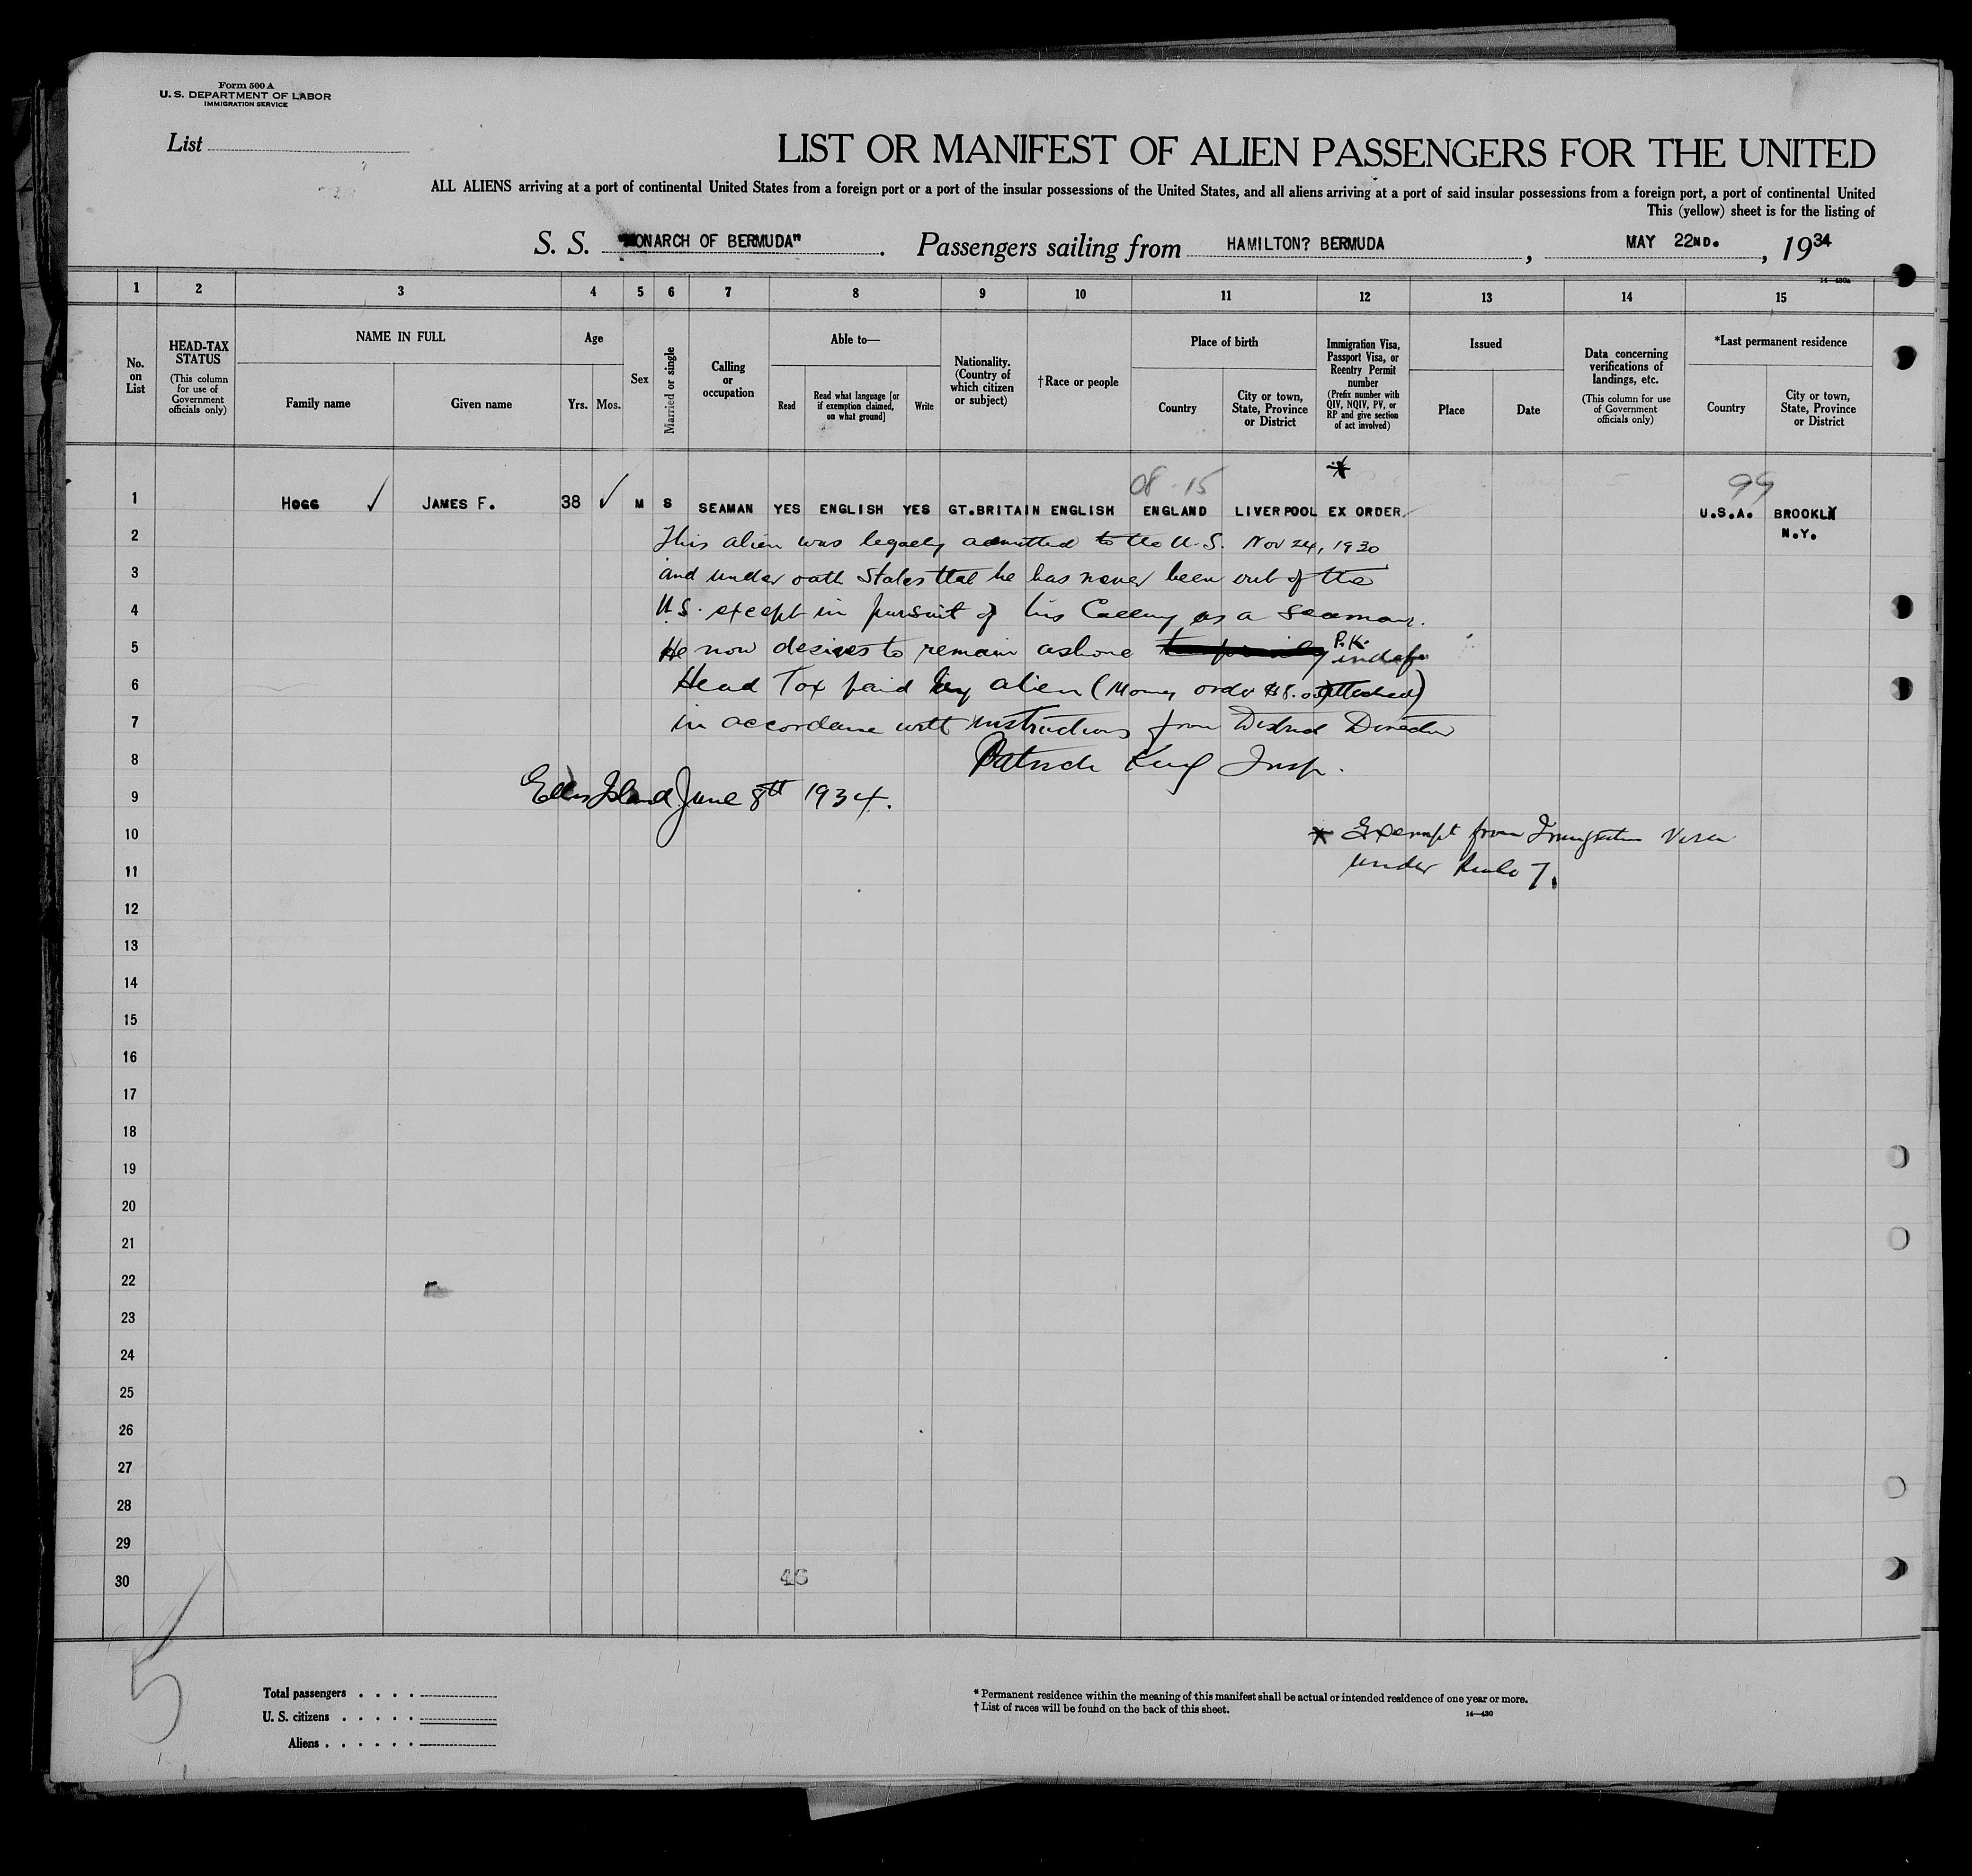 Form 500 A
U. S. DEPARTMENT OF LABOR
IMMIGRATION SERVICE
List
LIST OR MANIFEST OF ALIEN PASSENGERS FOR THE UNITED
ALL ALIENS arriving at a port of continental United States from a foreign port or a port of the insular possessions of the United States, and all aliens arriving at a port of said insular possessions from a foreign port, a port of continental United
This (yellow) sheet is for the listing of
S. S. "MONARCH OF BERMUDA". Passengers sailing from HAMILTON? BERMUDA, MAY 22ND., 1934
14—430a
1 2 3 4 5 6 7 8 9 10 11 12 13 14 15
No. on List
HEAD-TAX STATUS
(This column for use of Government officials only)
NAME IN FULL
Family name
Given name
Age
Yrs.
Mos.
Sex
Married or single
Calling or occupation
Able to—
Read
Read what language [or if exemption claimed, on what ground]
Write
Nationality. (Country of which citizen or subject)
†Race or people
Place of birth
Country
City or town, State, Province or District
Immigration Visa, Passport Visa, or Reentry Permit number
(Prefix number with QIV, NQIV, PV, or RP and give section of act involved)
Issued
Place
Date
Data concerning verifications of landings, etc.
(This column for use of Government officials only)
*Last permanent residence
Country
City or town, State, Province or District
08-15 * 99
1 HOGG ✓ JAMES F. 38 ✓ M S SEAMAN YES ENGLISH YES GT.BRITAIN ENGLISH ENGLAND LIVERPOOL EX ORDER U.S.A. BROOKLY
N.Y.
2 This alien was legally admitted to the U.S. Nov 24, 1930
3 and under oath States that he has never been out of the
4 U.S. except in pursuit of his Calling as a Seaman.
5 He now desires to remain ashore P.K. indef
6 Head Tax paid by alien (Money order $8.00 attached)
7 in accordance with instructions from District Director
8 Patrick King Insp.
9 Ellis Island June 8th 1934.
10 * Exempt from Immigration Visa
11 under Rule 7.
12
13
14
15
16
17
18
19
20
21
22
23
24
25
26
27
28
29
30
46
5
Total passengers
U. S. citizens
Aliens
* Permanent residence within the meaning of this manifest shall be actual or intended residence of one year or more.
† List of races will be found on the back of this sheet.
14—430